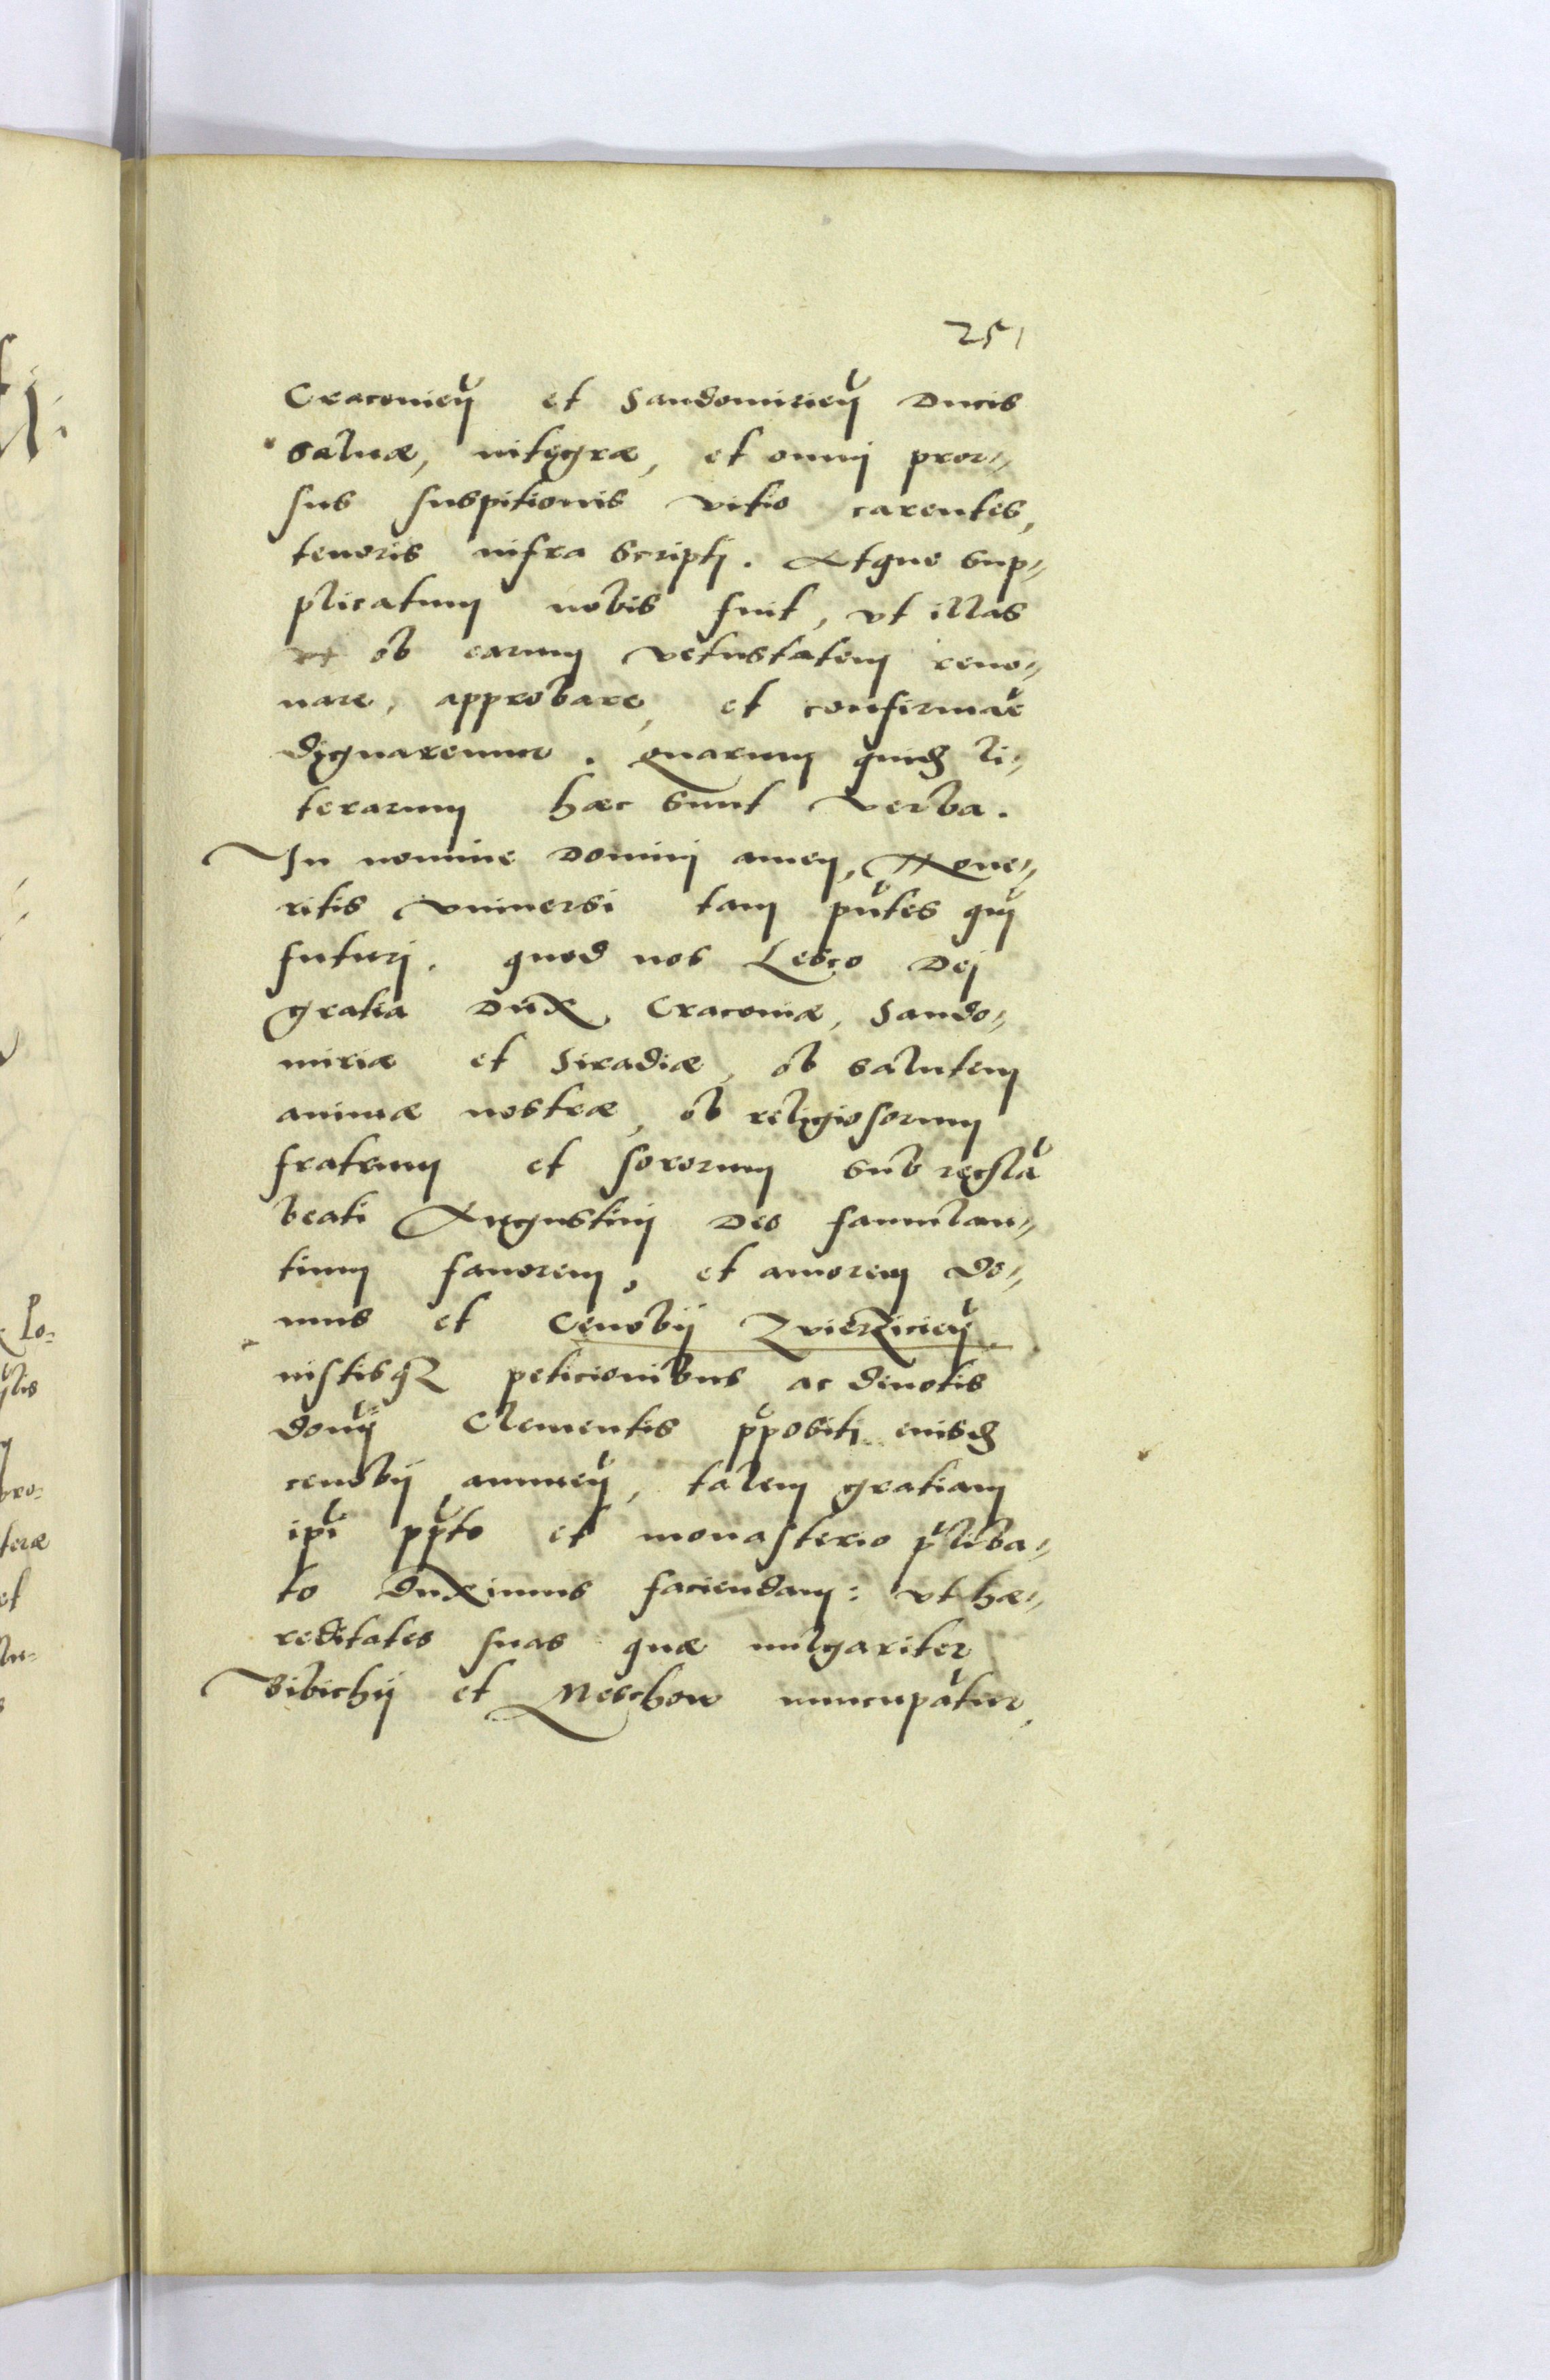 251
Cracovieñ et Sandomirieñ Ducis
salvæ, integræ, et omnj pror=
sus suspitionis vitio carentes,
tenoris infra scriptj. Atque sup=
plicatum nobis fuit, vt illas
ob earum vetustatem reno=
uare, approbare, et confirmar̃
dignaremur. Quarum quid̃ li=
terarum hæc sunt verba.
In nomine Dominj amen, Noue=
ritis vniuersi tam pñtes qm̃
futurj. quod nos Lesco Dej
gratia Dux Cracouiæ, Sando=
miriæ et Siradiæ, ob salutem
animæ nostræ, ob religiosorum
fratrum et sororum sub regla̅
beati Augustinj Deo famulan=
tium fauorem, et amorem do=
mus et Cenobij Zvierzicieñ
iustisqz peticionibus ac deuotis
donñ Clementis p̃positj eiusd̃
cenobij annueñ, talem gratiam
ip̃i pp̃to et monasterio p̃liba=
to duximus faciendam: vt hæ=
reditates suas quæ uulgariter
Bibichij et Meschow nuncupa̅tur,
Po=